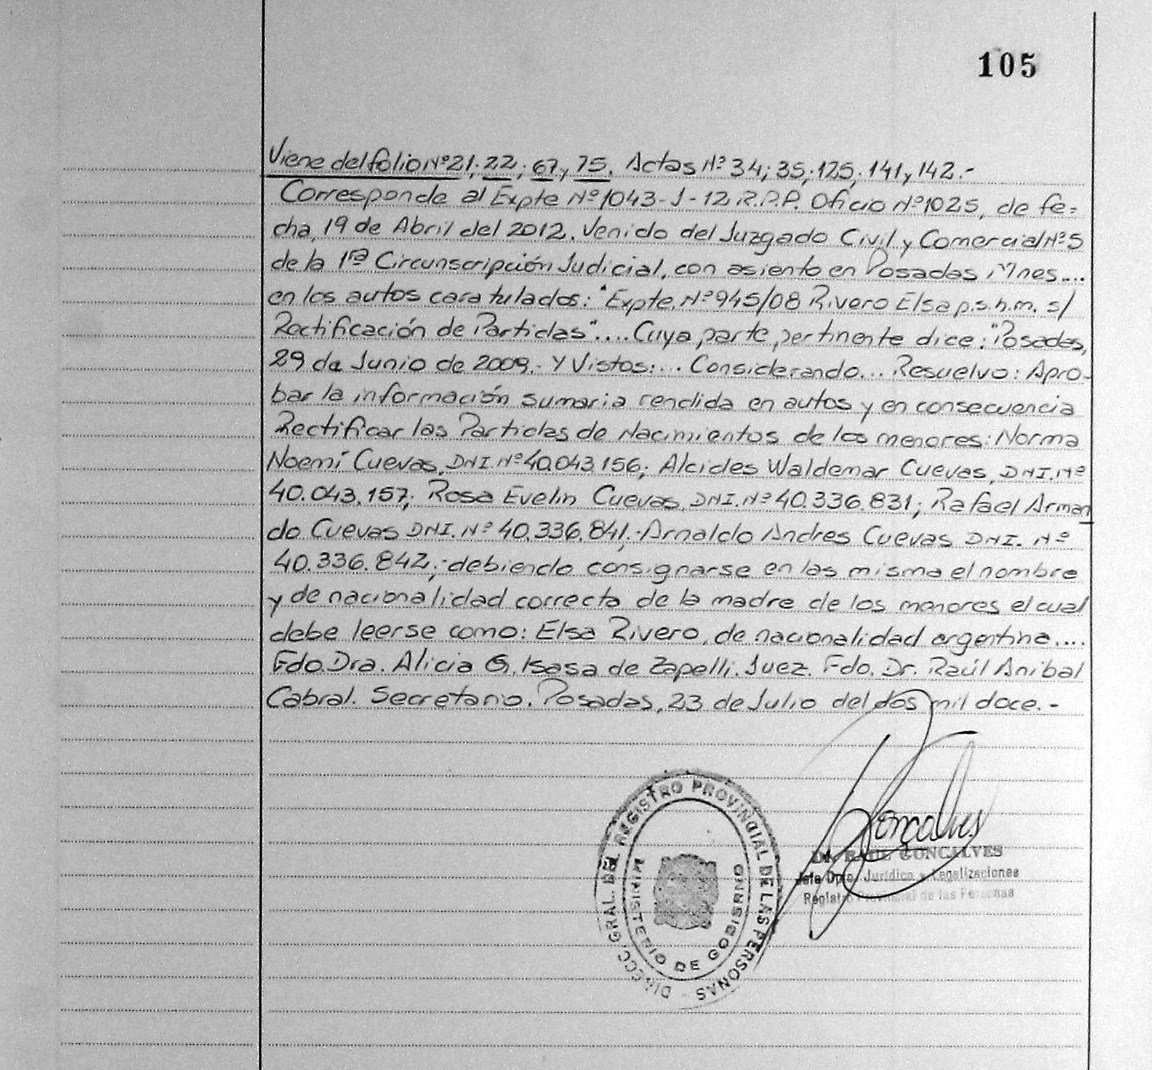 105
Viene del folio Nº 21; 22; 67 y 75. Actas Nº 34; 35; 125; 141 y 142.-
Corresponde al Expte Nº 1043-J-12 R.P.P. Oficio Nº 1025, de fe=
cha, 19 de Abril del 2012. Venido del Juzgado Civil y Comercial Nº 5
de la 1ra Circunscripción Judicial, con asiento en Posadas Mnes....
en los autos caratulados: "Expte. Nº 945/08 Rivero Elsa p.s.h.m. s/
Rectificación de Partidas".... Cuya parte pertinente dice: "Posadas,
29 de Junio de 2009.- Y Vistos:... Considerando... Resuelvo: Apro-
bar la información sumaria rendida en autos y en consecuencia
Rectificar las Partidas de Nacimientos de los menores: Norma
Noemí Cuevas, DNI. Nº 40.043.156; Alcides Waldemar Cuevas, DNI. Nº
40.043.157; Rosa Evelin Cuevas, DNI. Nº 40.336.831; Rafael Arman
do Cuevas DNI. Nº 40.336.841;-Arnaldo Andres Cuevas DNI. Nº
40.336.842;-debiendo consignarse en las misma el nombre
y de nacionalidad correcta de la madre de los menores el cual
debe leerse como: Elsa Rivero, de nacionalidad argentina....
Fdo. Dra. Alicia G. Isasa de Zapelli. Juez. Fdo. Dr. Raúl Anibal
Cabral. Secretario. Posadas, 23 de Julio del dos mil doce.-
DIRECC. GRAL. DEL REGISTRO PROVINCIAL DE LAS PERSONAS
MINISTERIO DE GOBIERNO
Goncalves
Dr. RAUL GONCALVES
Jefe Dpto. Jurídico y Legalizaciones
Registro Provincial de las Personas